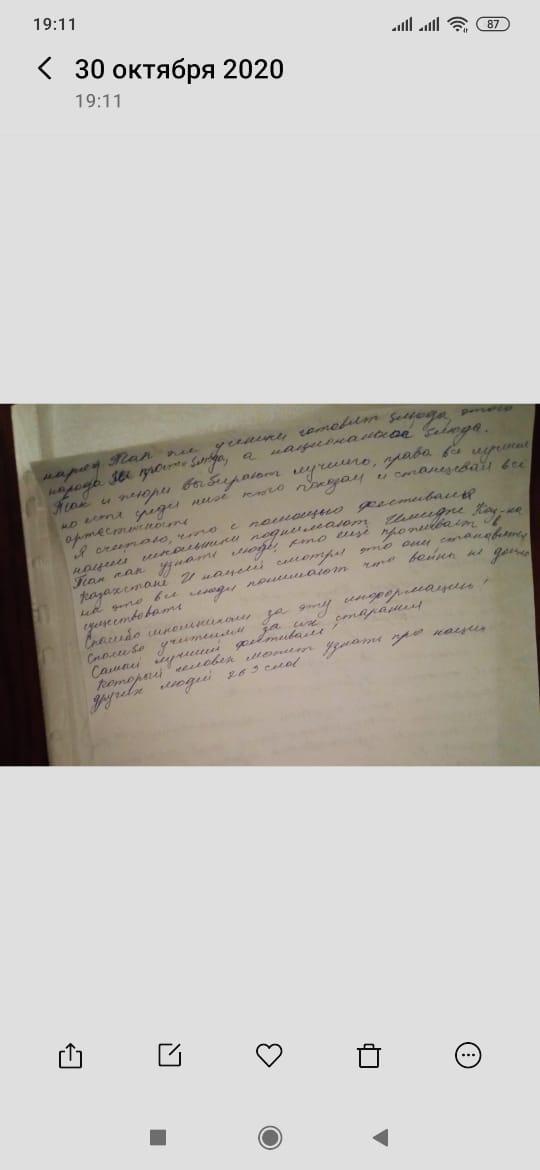 19:11
87
30 октября 2020
19:11
народ Так же ученики готовят блюда этого
народа Не просто блюда, а национальное блюда.
Так и жюри выбирают лучшего, права все лучшие
но есть среди них кто показал и станцевал все
артестичность
Я считаю, что с помощью фестиваля
нации школьники поднимают Имидж Каз-на
Так как узнать люди, кто ещё проживает в
Казахстане И нацей смотря это они становятся
на это все люди понимают что войны не должно
существовать
Спасибо школьникам за эту информацию!
Спасибо учителям за их старания
Самый лучший фестиваль,
который человек может узнать про нации
других людей 263 слов